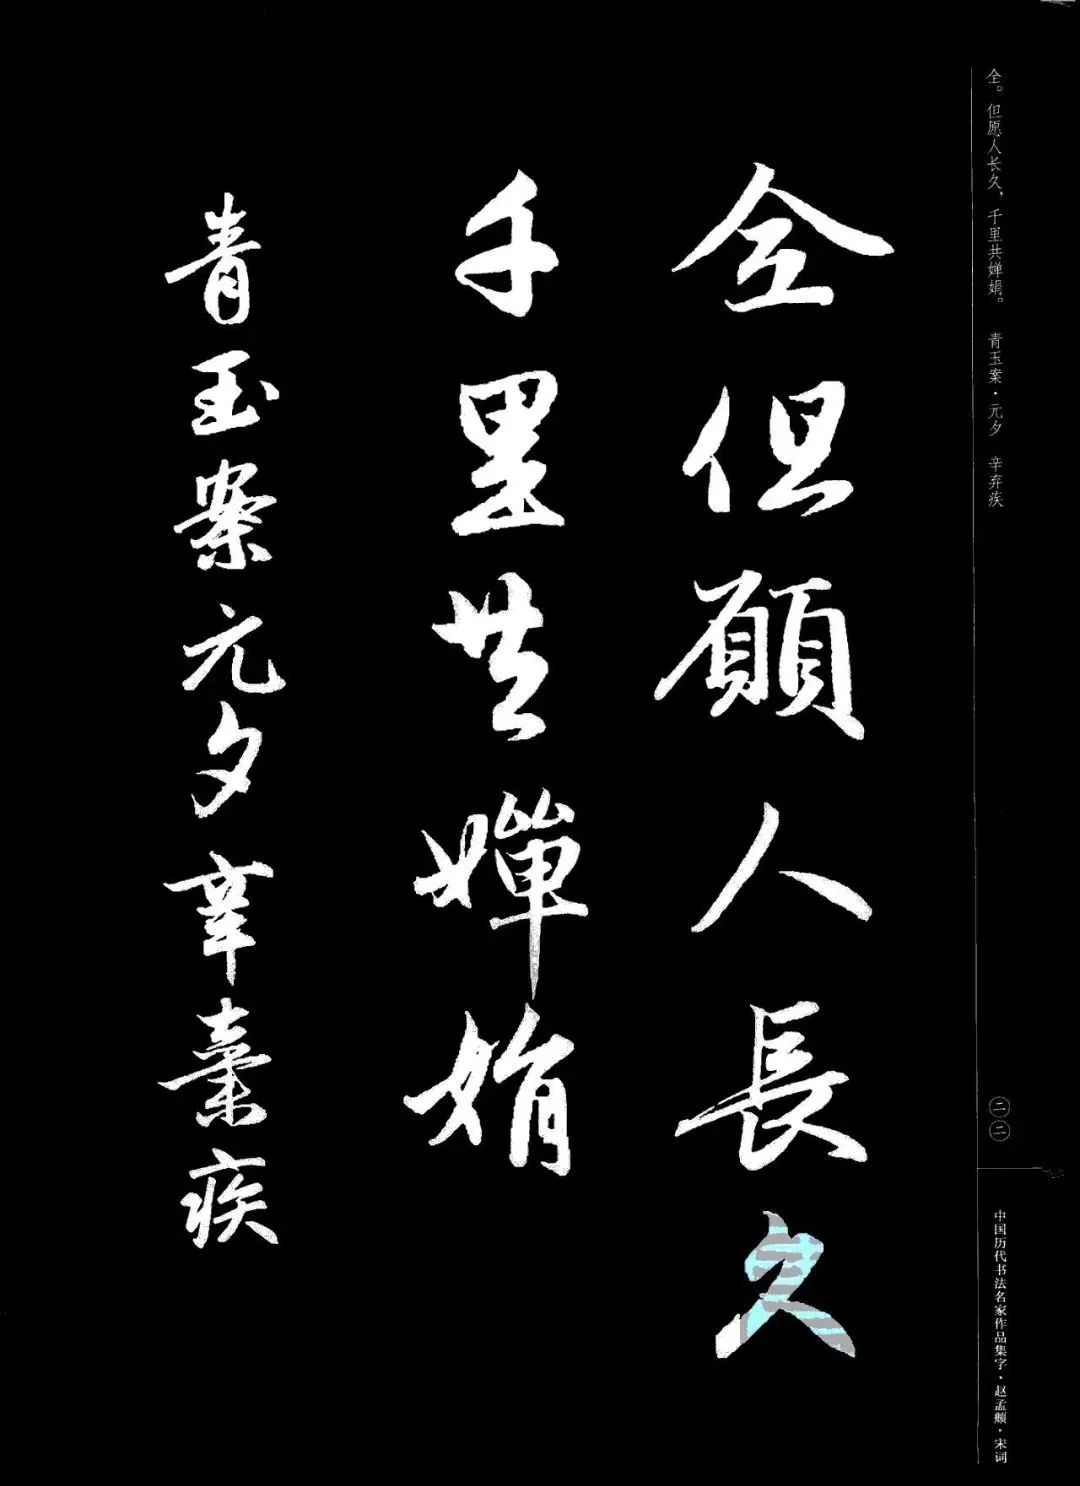 全但願人長久
千里共嬋娟
青玉案元夕辛棄疾
全。但愿人长久，千里共婵娟。 青玉案·元夕 辛弃疾
二二
中国历代书法名家作品集字·赵孟頫·宋词